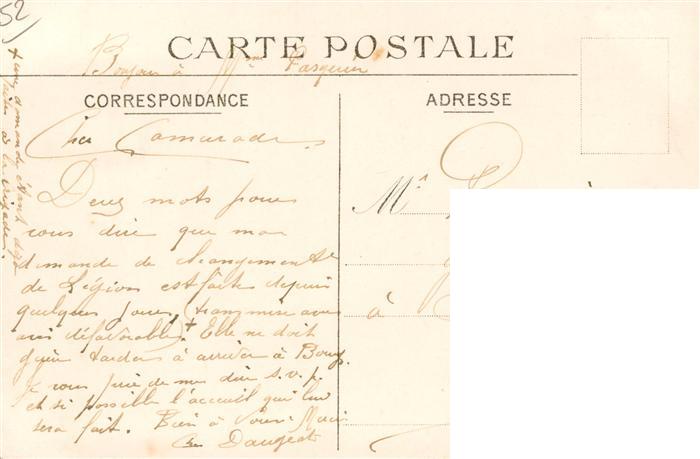 52
CARTE POSTALE
Bonjour à Mme Pasquier
CORRESPONDANCE
ADRESSE
Cher Camarade,
Deux mots pour
vous dire que ma
demande de changement
de Légion est faite depuis
quelques jours, (transmise avec
avis défavorable).+ Elle ne doit
guère tarder à arriver à Bourg.
Je vous prie de me dire s.v.p.
et si possible l'accueil qui lui
sera fait. Bien à Vous. Merci
Daugeat
+ une demande étant déjà
faite à la brigade.
Mr
à